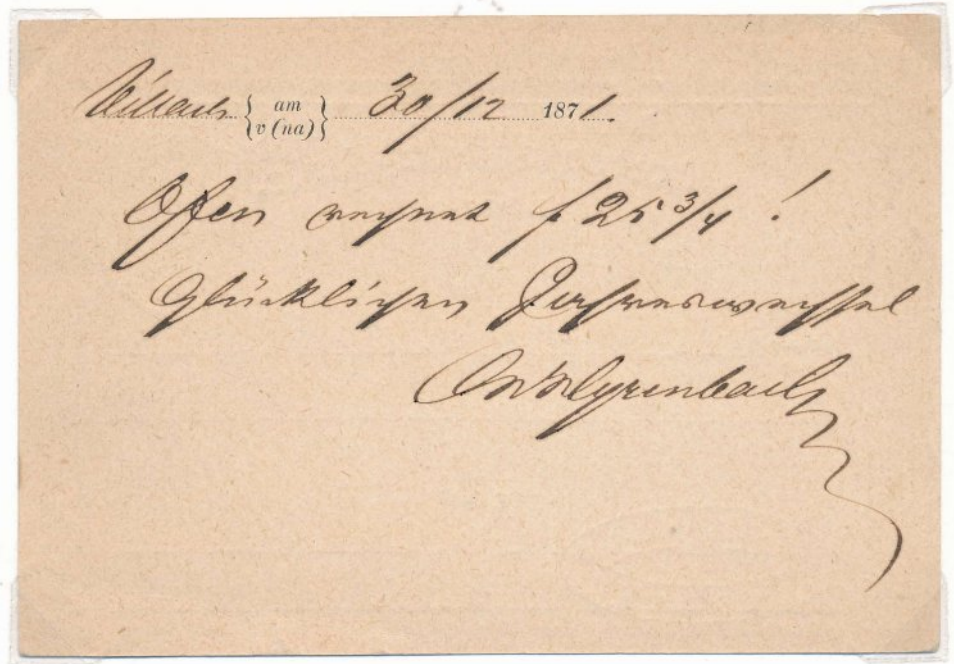 Villach { am v (na) } 30/12 1871.
Ofen rechnet f 25 3/4 !
Glücklichen Jahreswechsel